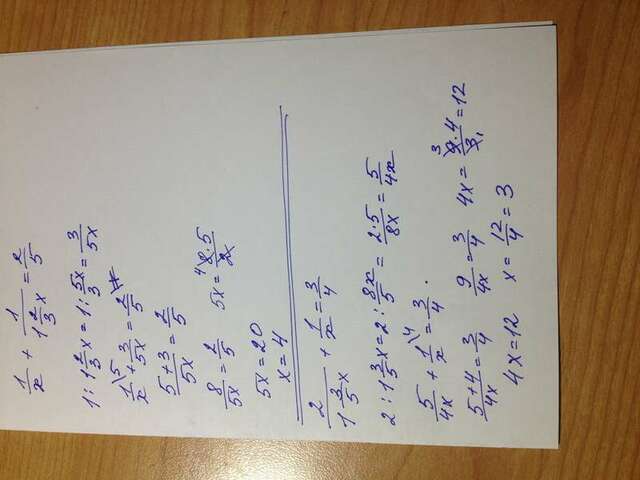 1/x + 1/(1 2/3 x) = 2/5
1 : 1 2/3 x = 1 : 5x/3 = 3/5x
1\5/x + 3/5x = 2/5
5+3/5x = 2/5
8/5x = 2/5 5x = 4 8·5/2
5x = 20
x = 4
2/(1 3/5 x) + 1/x = 3/4
2 : 1 3/5 x = 2 : 8x/5 = 2·5/8x = 5/4x
5/4x + 1\4/x = 3/4 .
5+4/4x = 3/4 9/4x = 3/4 4x = 3 9·4/3 1 = 12
4x = 12 x = 12/4 = 3